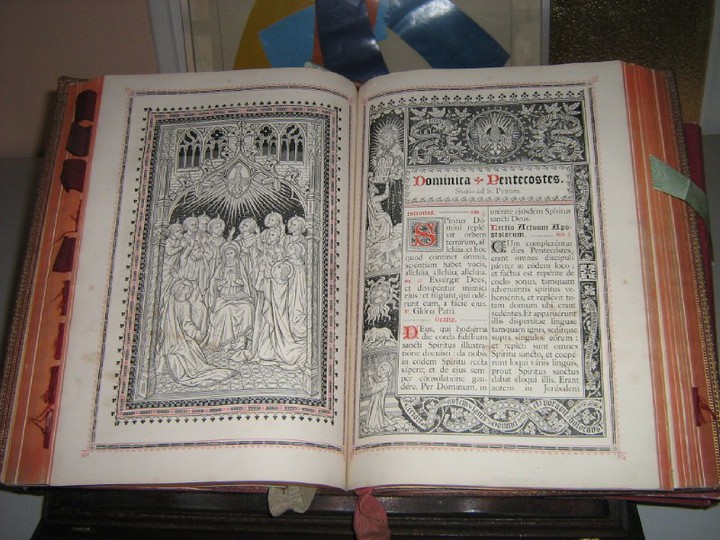 Dominica ✠ Pentecostes.
Statio ad S. Petrum.
Introitus.
Spíritus Dómini
replévit
orbem
terrárum, al-
lelúia: et hoc
quod cóntinet ómnia,
sciéntiam habet vocis,
allelúia, allelúia, allelúia.
Exsúrgat Deus,
et dissipéntur inimíci
ejus: et fúgiant, qui odé-
runt eum, a fácie ejus.
℣. Glória Patri.
Oratio.
Deus, qui hodiérna
die corda fidélium
sancti Spíritus illustra-
tióne docuísti: da nobis
in eódem Spíritu recta
sápere; et de ejus sem-
per consolatióne gau-
dére. Per Dóminum, in
unitáte ejúsdem Spíritus
sancti Deus.
Léctio Actuum Apo-
stolorum.
Cum compleréntur
dies Pentecóstes,
erant omnes discípuli
páriter in eódem loco:
et factus est repénte de
coelo sonus, tamquam
adveniéntis spíritus ve-
heméntis, et replévit to-
tam domum ubi erant
sedéntes. Et apparuérunt
illis dispertítae linguae
tamquam ignis, sedítque
supra síngulos eórum:
et repléti sunt omnes
Spíritu sancto, et coepé-
runt loqui váriis linguis,
prout Spíritus sanctus
dabat éloqui illis. Erant
autem in Jerúsalem